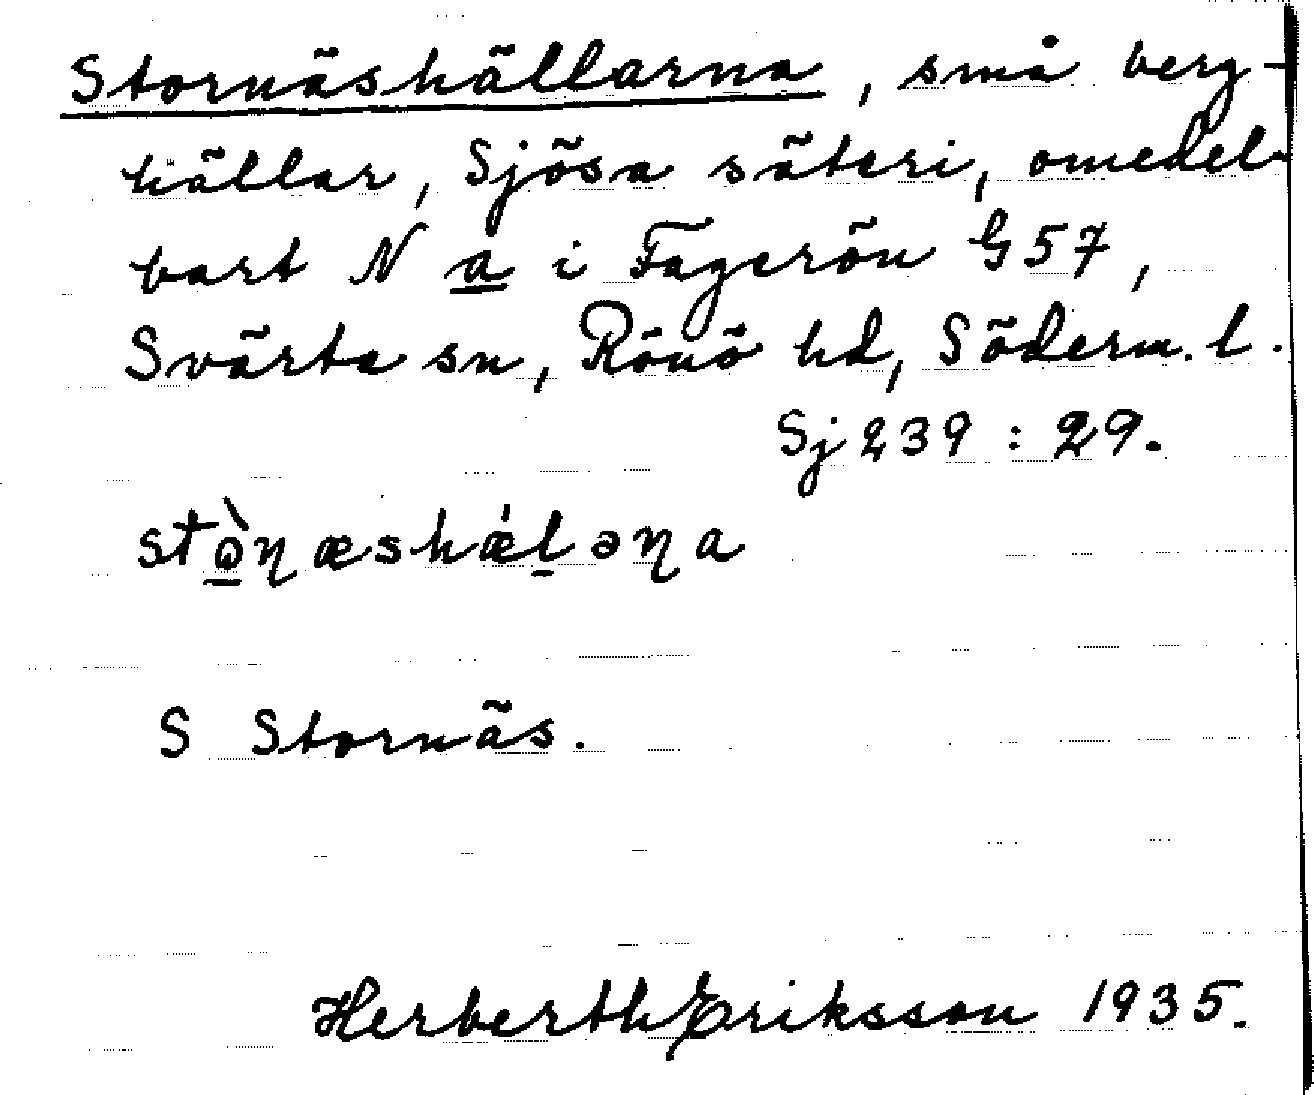 Stornäshällarna, små berg-
hällar, Sjösa säteri, omedel-
bart N a i Fagerön G57,
Svärta sn, Rönö hd, Söderm. l.
Sj 239 : 29.
stò̱ɳæshǽḻəɳa
S Stornäs.
Herberth Eriksson 1935.